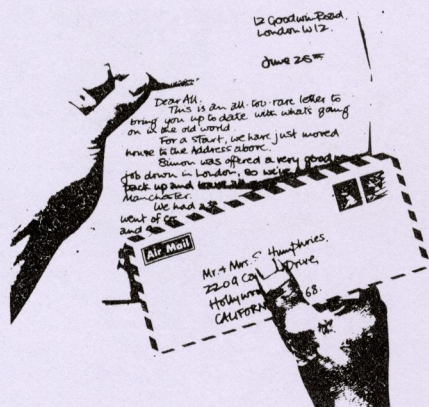 12 Goodwin Road.
London W12.
June 26TH
Dear All.
This is an all-too-rare letter to
bring you up to date with what's going
on in the old world.
For a start, we have just moved
house to the Address above.
Simon was offered a very good
job down in London, so we're
pack up and leave
Manchester.
We had a
went of
and
Air Mail
Mr. & Mrs. S Humphries.
2209 Drive,
Hollywo
CALIFORN 68.